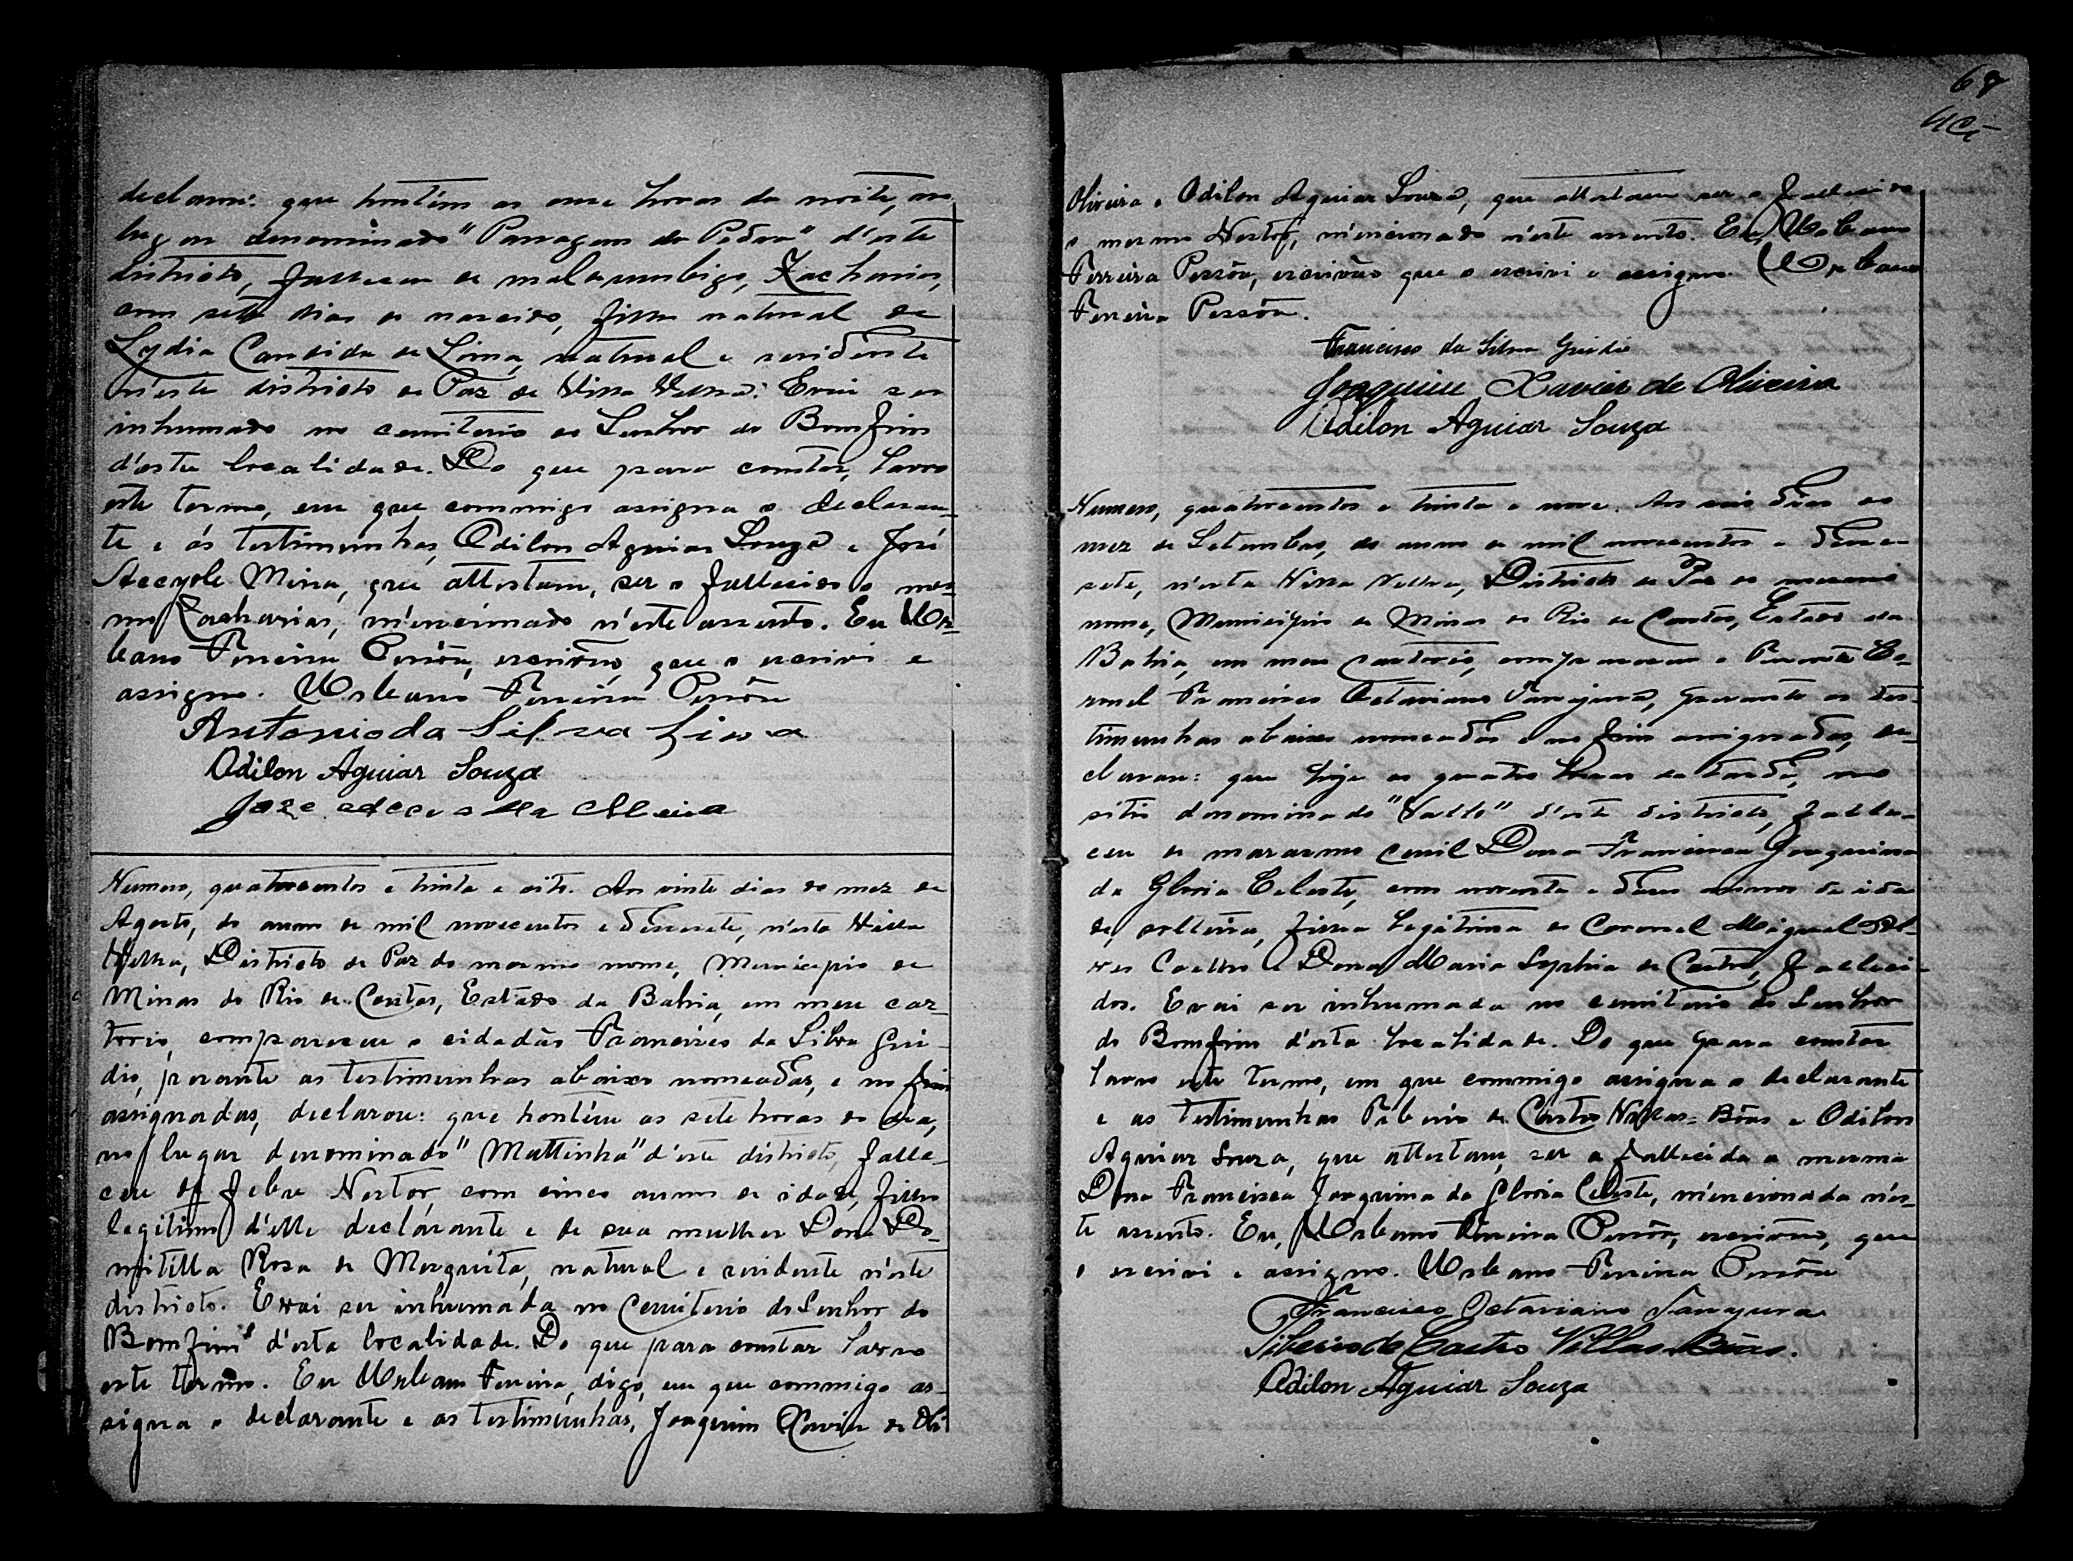 declarou: que hontém as onze horas da noite, no
lugar denominado "Passagem da Pedra", d'este
districto, falleceu de mal de umbigo, Zacharias,
com sete dias de nascido, filho natural de
Lydia Candida de Lima, natural e residente
n'este districto de Paz de Villa Velha. E vai ser
inhumado no cemiterio do Senhor do Bomfim
d'esta localidade. Do que para constar, lavro
este termo, em que commigo assigna o declaran-
te e ás testimunhas, Odilon Aguiar Souza e José
Meira, que attestam, ser o fallecido o mes-
mo Zacharias, mencionado n'este assento. Eu Ur-
bano Ferreira Pessôa, escrivão, que o escrivi e
assigno. Urbano Ferreira Pessôa
Antonio da Silva Lima
Odilon Aguiar Souza
Joze Meira
Numero, quatrocentos e trinta e oito. Aos vinte dias do mez de
Agosto, do anno de mil novecentos e desesete, n'esta Villa
Velha, Districto de Paz do mesmo nome, Municipio de
Minas do Rio de Contas, Estado da Bahia, em meu car-
torio, compareceu o cidadão Francisco da Silva
perante as testimunhas abaixo nomeadas, e no fim
assignadas, declarou: que hontém as sete horas do dia,
no lugar denominado "Mattinha" d'este districto, falle-
ceu de febre Nestor com cinco annos de idade, filho
legitimo d'elle declarante e de sua mulher Dona Do-
mitilla Rosa de Mesquita, natural e residente n'este
districto. E vai ser inhumado no Cemiterio do Senhor do
Bomfim d'esta localidade. Do que para constar lavro
este termo. Eu Urbano Ferreira, digo, em que commigo as-
signa o declarante e as testimunhas, Joaquim Xavier de Oli
68
Oliveira e Odilon Aguiar Souza, que attestam ser o fallecido
o mesmo Nestor, mencionado n'este assento. Eu, Urbano
Ferreira Pessôa, escrivão que o escrivi e assigno. Urbano
Ferreira Pessôa.
Francisco da Silva
Joaquim Xavier de Oliveira
Odilon Aguiar Souza
Numero, quatrocentos e trinta e nove. Aos seis dias do
mez de Setembro, do anno de mil novecentos e dese-
sete, n'esta Villa Velha, Districto de Paz do mesmo
nome, Municipio de Minas do Rio de Contas, Estado da
Bahia, em meu cartorio, compareceu o Tenente Co-
ronel Francisco Octaviano Tanajura, perante as tes-
timunhas abaixo nomeadas e no fim assignadas, de-
clarou: que hoje as quatro horas da tarde, no
sitio denominado "Vallo" d'este districto, falle-
ceu de marasmo senil Dona Francisca Joaquina
da Gloria Celeste, com noventa e annos de ida
de, solteira, filha legitima do Coronel Miguel
Coelho e Dona Maria Sophia de Castro, falleci-
dos. E vai ser inhumada no cemiterio do Senhor
do Bomfim d'esta localidade. Do que para constar
lavro este termo, em que commigo assigna o declarante
e as testimunhas Tiberio de Castro Villas-Bôas e Odilon
Aguiar Souza, que attestam, ser a fallecida a mesma
Dona Francisca Joaquina da Gloria Celeste, mencionada n'es-
te assento. Eu, Urbano Ferreira Pessôa, escrivão, que
o escrivi e assigno. Urbano Ferreira Pessôa
Francisco Octaviano Tanajura
Tiberio de Castro Villas Bôas.
Odilon Aguiar Souza